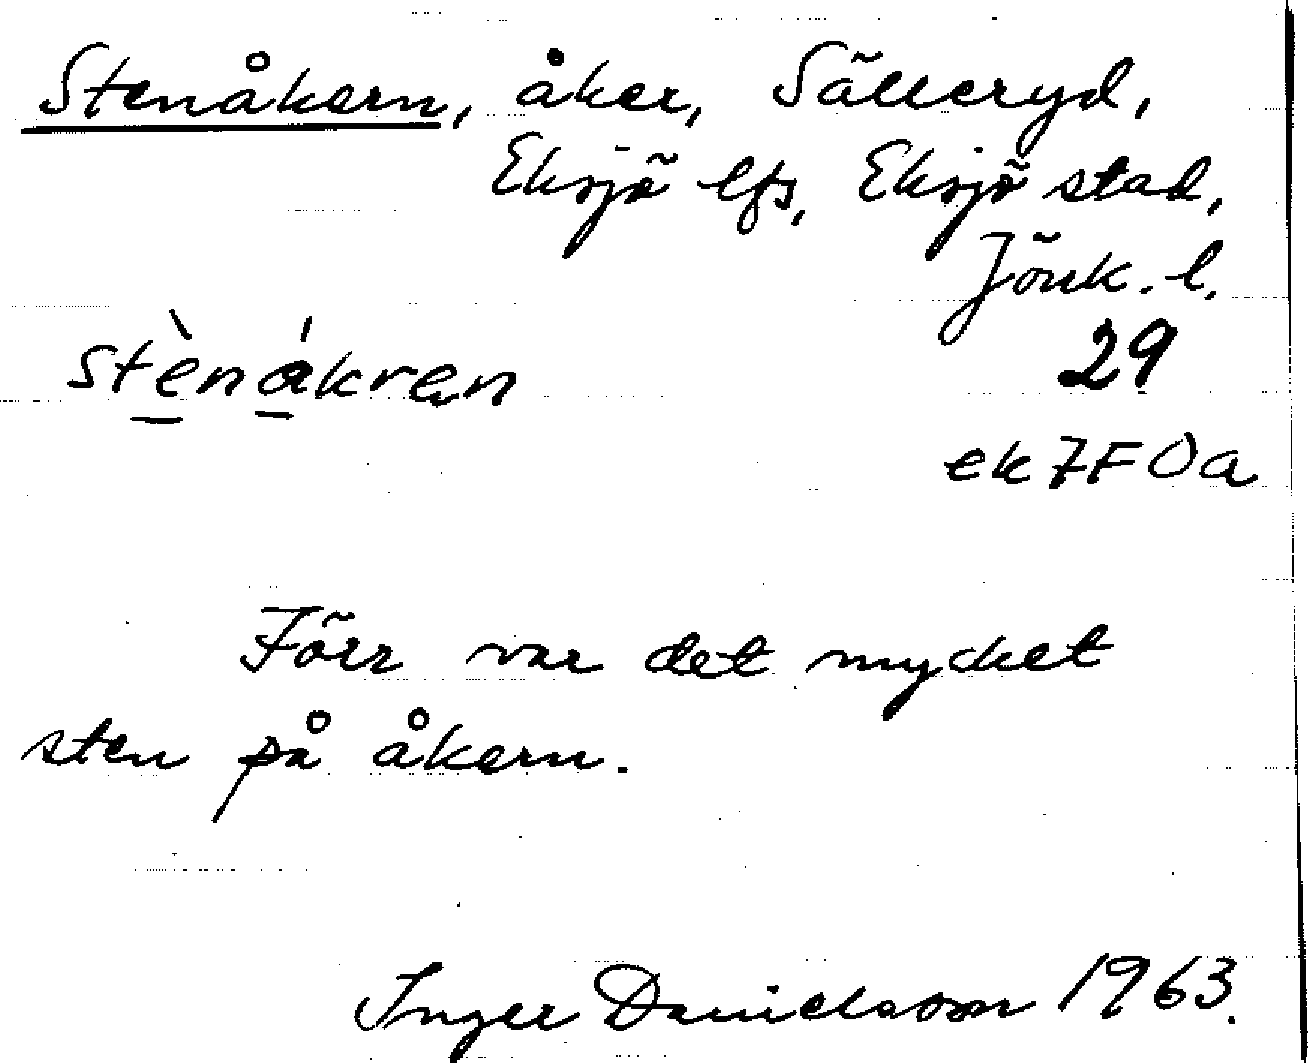 Stenåkern, åker, Sälleryd,
Eksjö lfs, Eksjö stad,
Jönk. l.
stènákren
29
ek 7F 0a
Förr var det mycket
sten på åkern.
Inger Danielsson 1963.